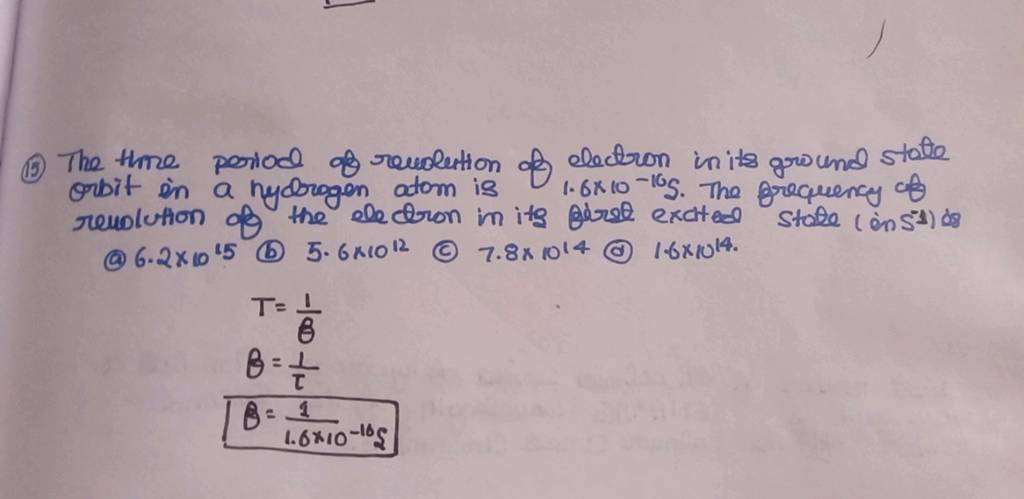 ⑮ The time period of revolution of electron in its ground state
orbit in a hydrogen atom is 1.6×10⁻¹⁶S. The frequency of
revolution of the electron in its first excited state (in S⁻¹) is
ⓐ 6.2×10¹⁵ ⓑ 5.6×10¹² ⓒ 7.8×10¹⁴ ⓓ 1.6×10¹⁴.
T= 1/f
f = 1/T
f = 1/1.6×10⁻¹⁶S